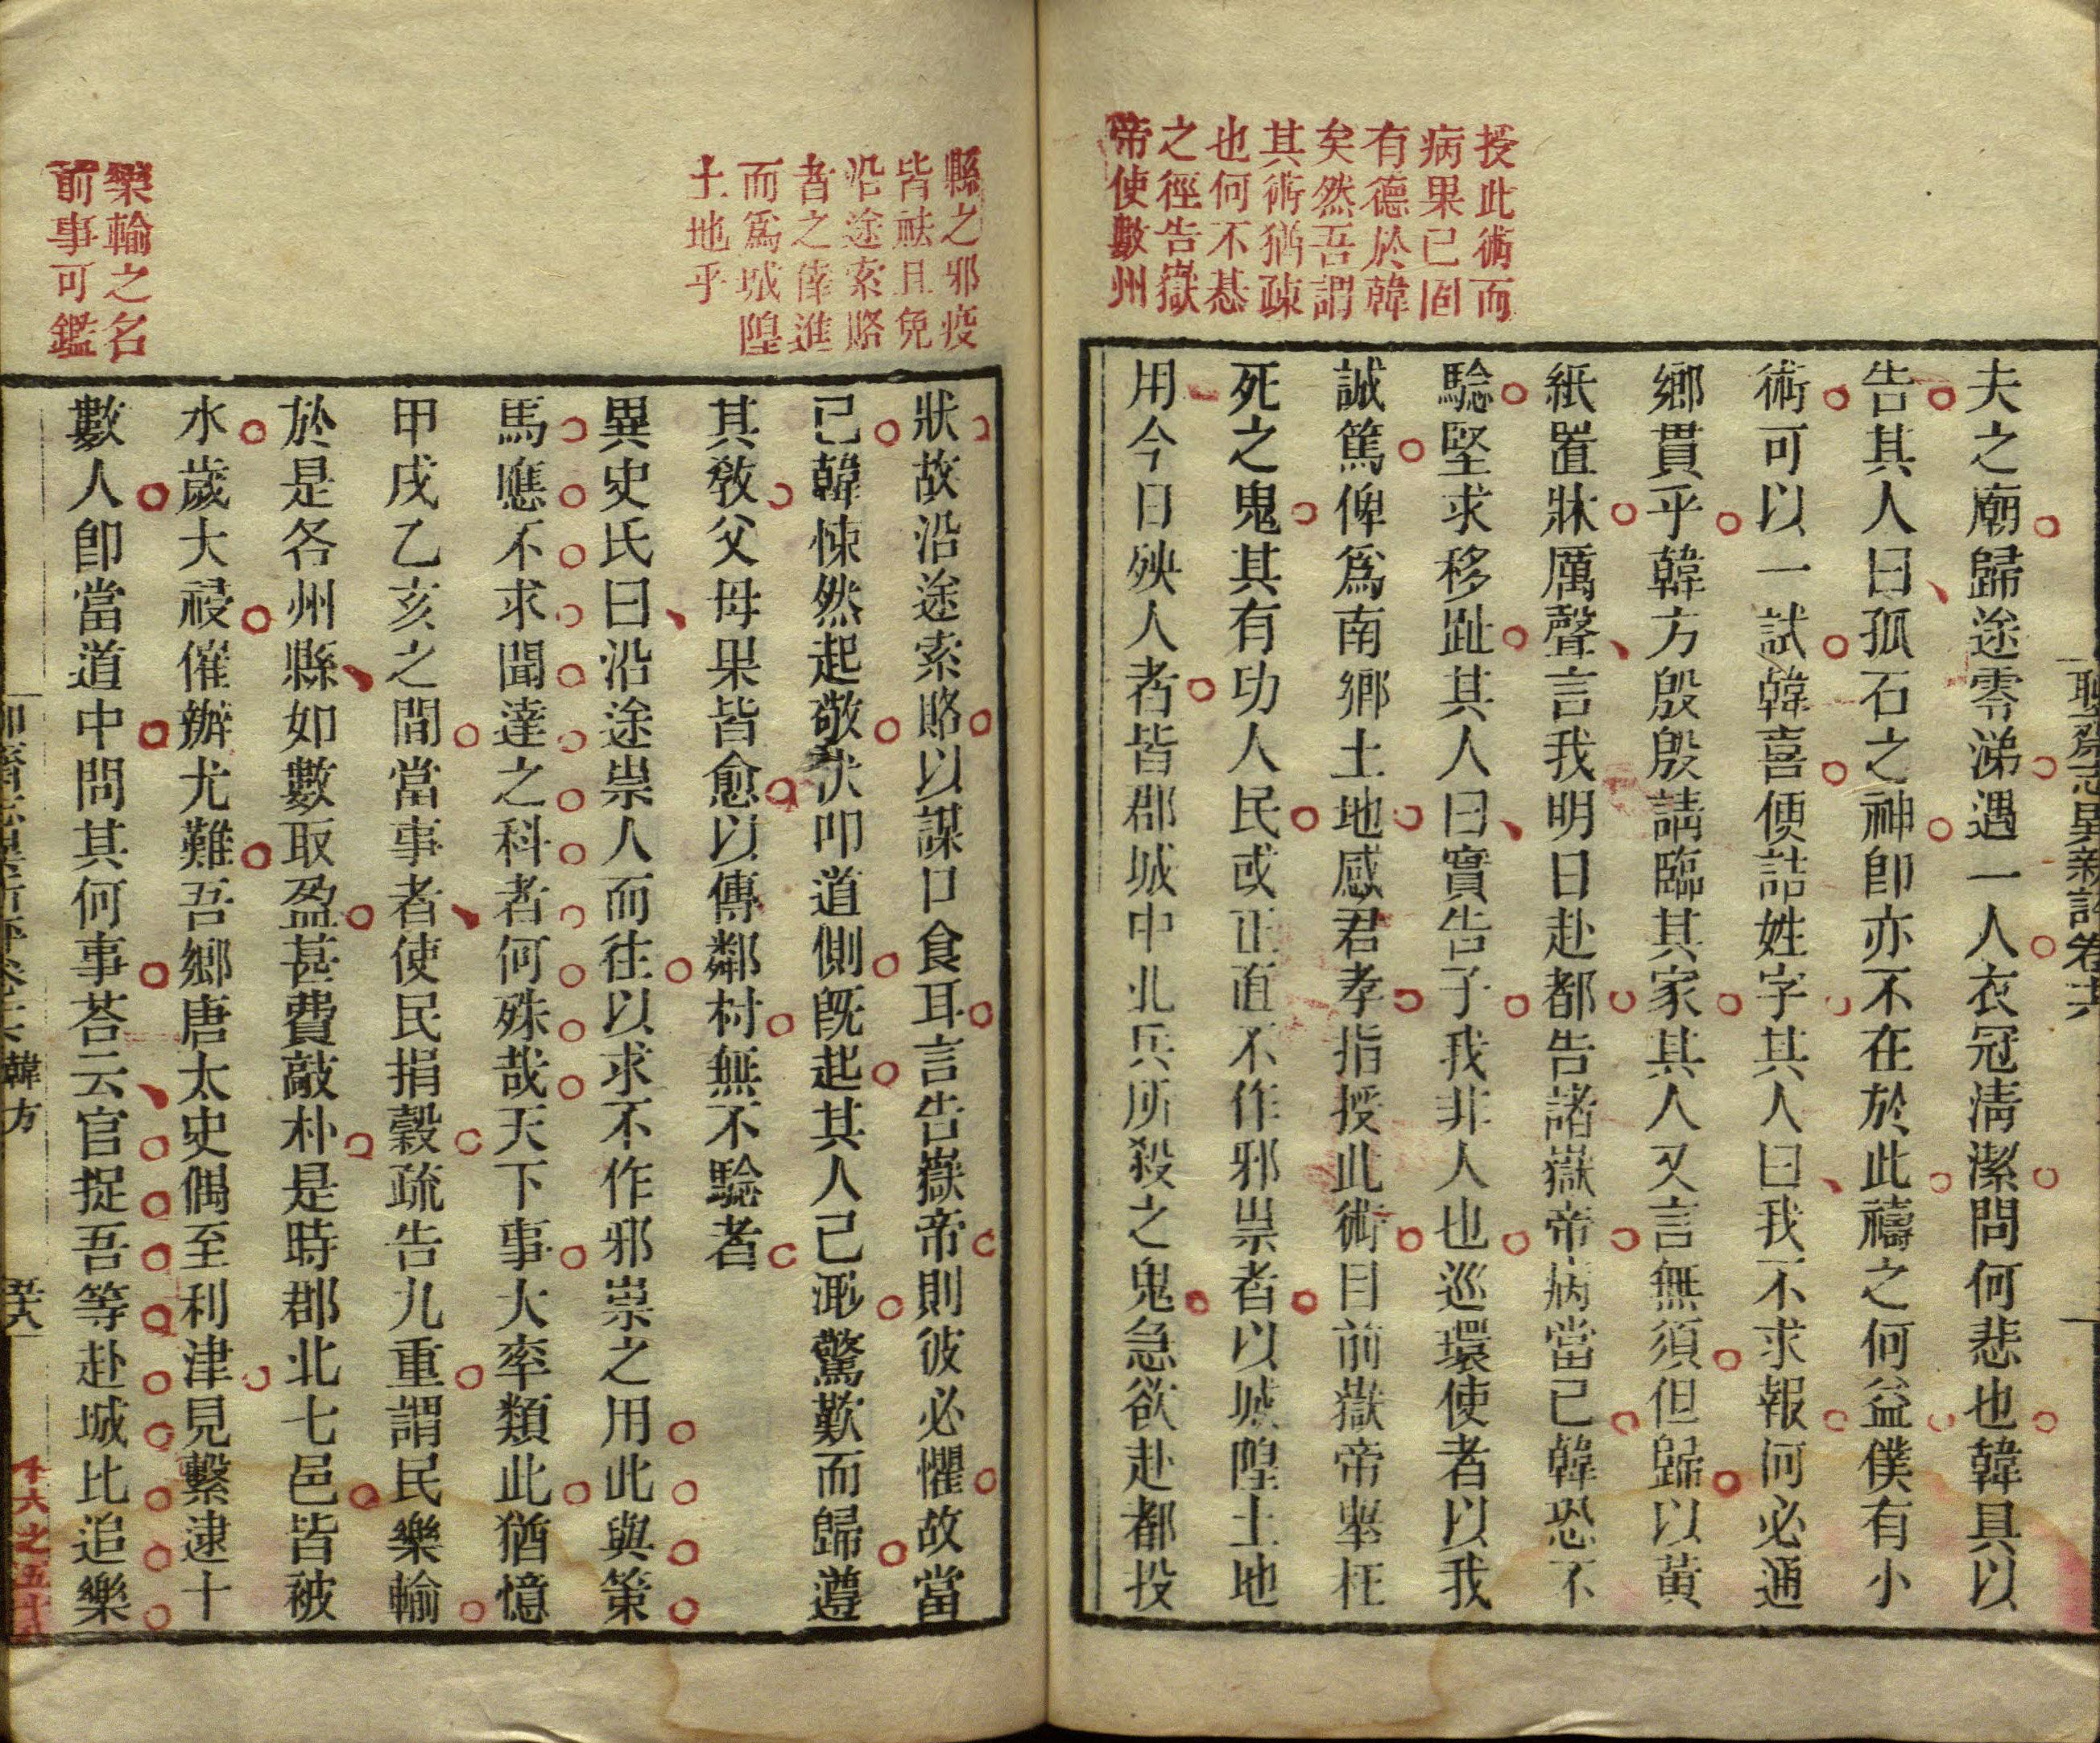 授此術而
病果已固
有德於韓
矣然吾謂
其術猶疎
也何不惎
之徑告嶽
帝使數州
夫之廟歸途零涕遇一人衣冠清潔問何悲也韓具以
告其人曰孤石之神卽亦不在於此禱之何益僕有小
術可以一試韓喜便詰姓字其人曰我不求報何必通
鄉貫乎韓方殷殷請臨其家其人又言無須但歸以黃
紙置牀厲聲言我明日赴都告諸嶽帝病當已韓恐不
驗堅求移趾其人曰實告子我非人也巡環使者以我
誠篤俾爲南鄉土地感君孝指授此術目前嶽帝舉枉
死之鬼其有功人民或正直不作邪祟者以城隍土地
用今日殃人者皆郡城中北兵所殺之鬼急欲赴都投
縣之邪疫
皆祛且免
沿途索賂
者之倖進
而爲城隍
土地乎
狀故沿途索賂以謀口食耳言告嶽帝則彼必懼故當
已韓悚然起敬伏叩道側旣起其人已渺驚歎而歸遵
其教父母果皆愈以傳鄰村無不驗者
異史氏曰沿途祟人而往以求不作邪祟之用此與策
馬應不求聞達之科者何殊哉天下事大率類此猶憶
甲戌乙亥之間當事者使民捐穀疏告九重謂民樂輸
於是各州縣如數取盈甚費敲朴是時郡北七邑皆被
水歲大祲催辦尤難吾鄉唐太史偶至利津見繫逮十
數人卽當道中問其何事荅云官捉吾等赴城比追樂
樂輸之名
前事可鑑
聊齋志異新評卷十六
韓方
十六之五十六